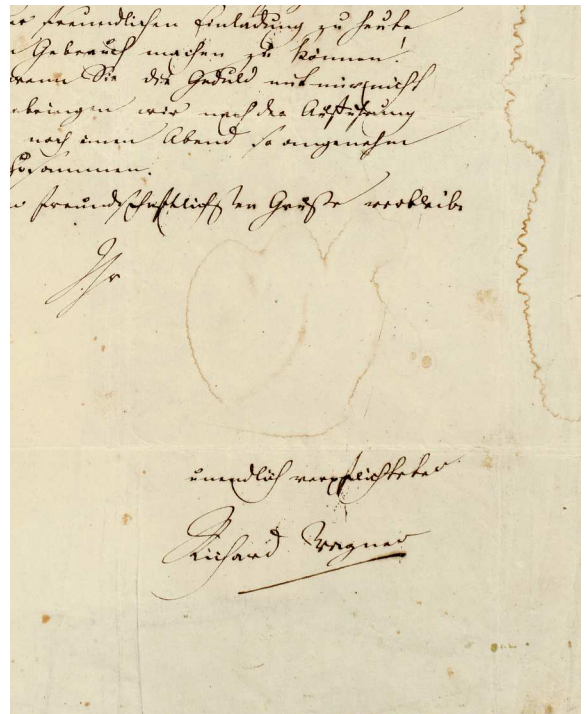 freundlichen Einladung zu heute
Gebrauch machen zu können!
wenn Sie die Geduld mit mir nicht
wir nach der Aufführung
noch einen Abend so angenehm
zusammen.
freundschaftlichsten Grüße verbleibe
Ihr
unendlich verpflichteter
Richard Wagner